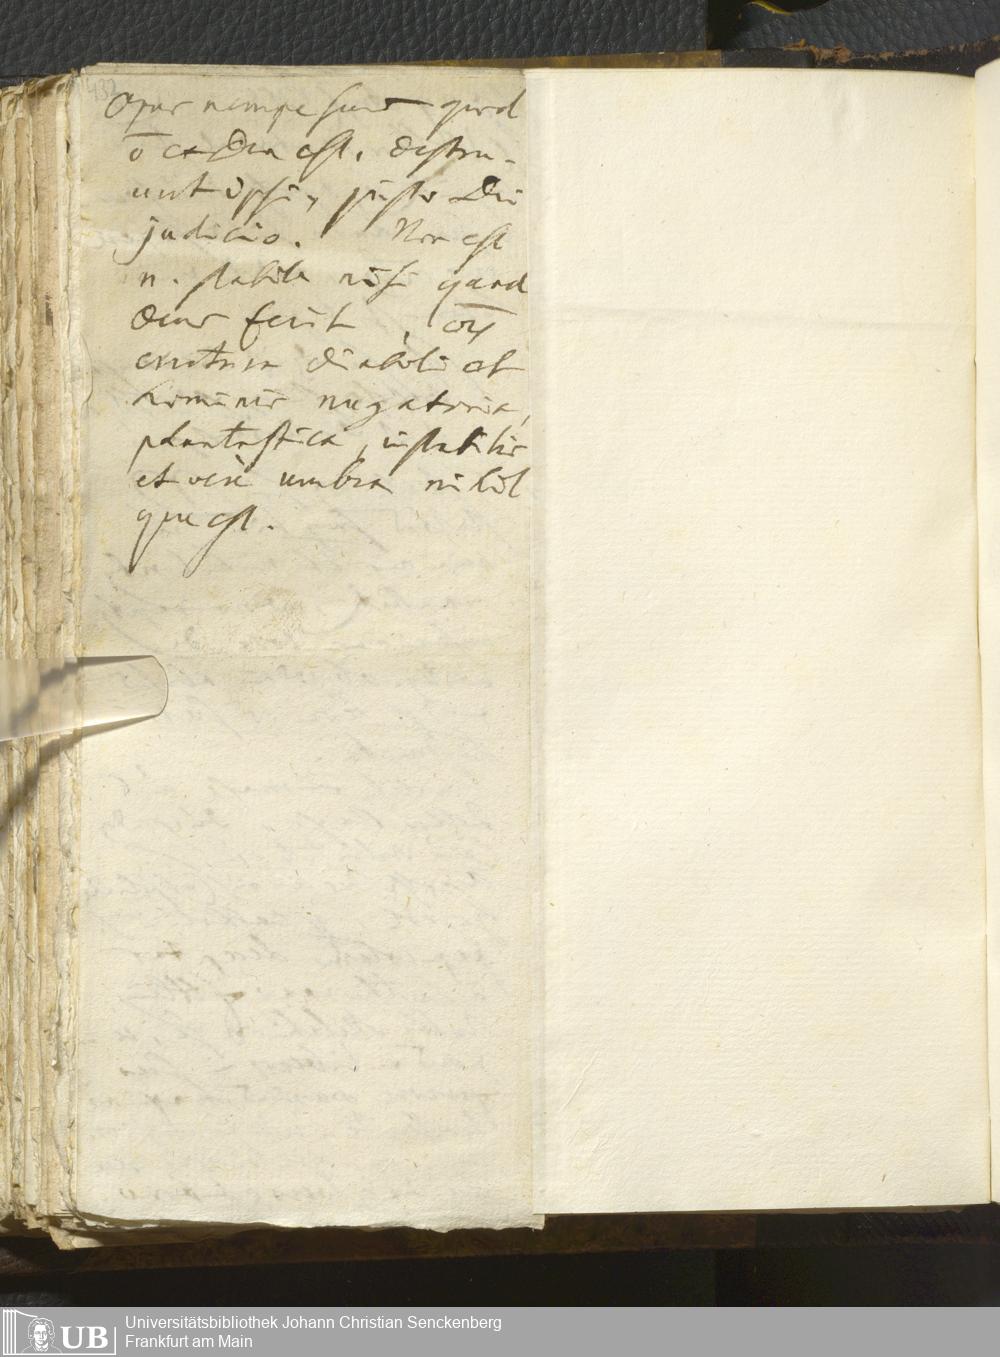 432
Opus nempe suum quod
ō ex Deo est, destru-
unt ipsi, justo Dei
judicio. Non est
n. stabile nisi quod
Deus fecit,
creatura diaboli et
hominis nugatoria,
phantastica, instabilis
et vere umbra nihil
que est.
UB
Universitätsbibliothek Johann Christian Senckenberg
Frankfurt am Main